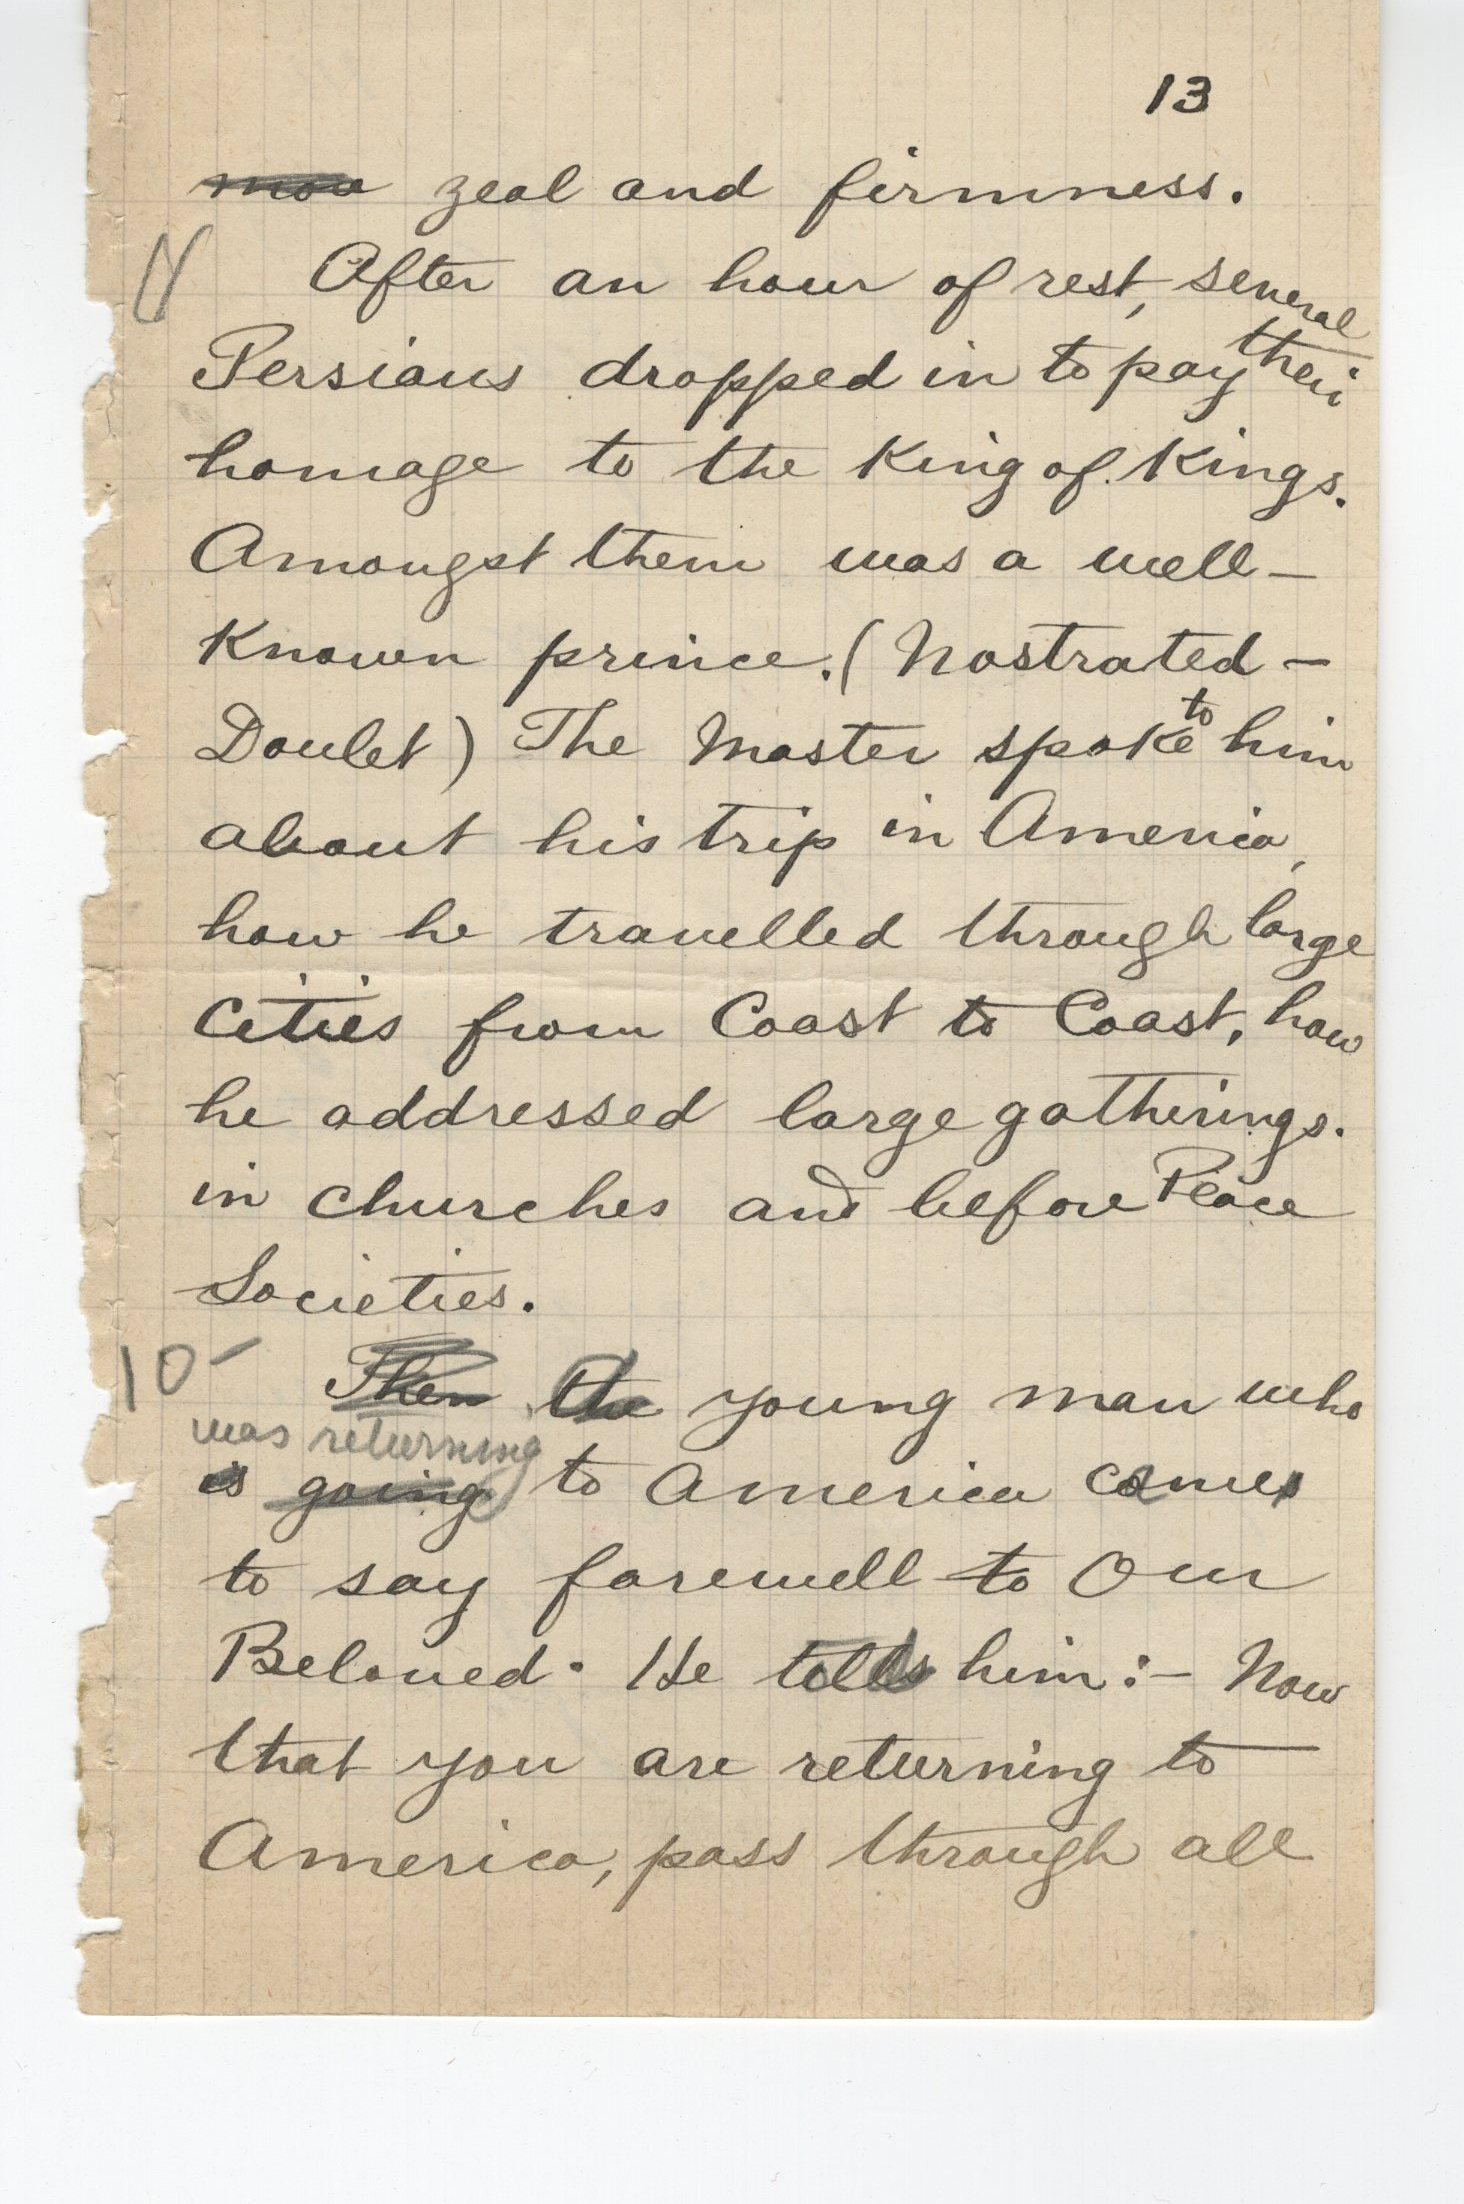 13
mor zeal and firmness.
After an hour of rest, several
Persians dropped in to pay their
homage to the King of Kings.
Amongst them was a well-
known prince. (Nostrated-
Doulet) The Master spoke to him
about his trip in America,
how he travelled through large
cities from Coast to Coast, how
he addressed large gatherings.
in churches and before Peace
Societies.
10
Then the young man who
was returning
is going to America comes
to say farewell to Our
Beloved. He tells him:- Now
that you are returning to
America, pass through all